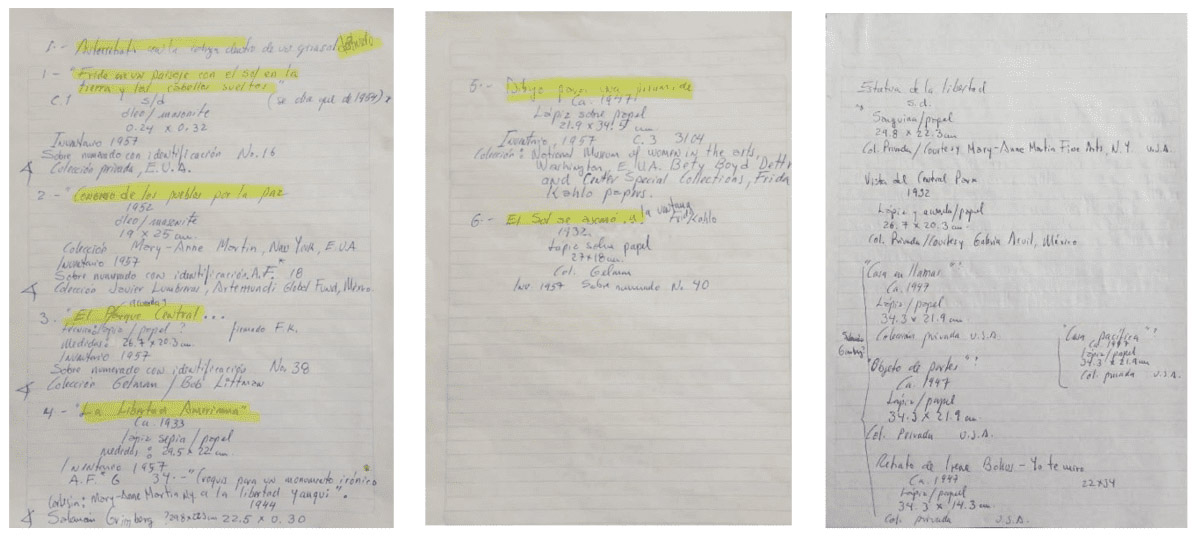 5.- Autorretrato con la … dentro de un girasol
1 - "Frida en un paisaje con el sol en la
tierra y los cabellos sueltos"
C.1 s/d (se dice que de 1954)
óleo/masonite
0.24 x 0.32
Inventario 1957
Sobre numerado con identificación No. 16
Colección privada, E.U.A.
2 - "Congreso de los pueblos por la paz
1952
óleo/masonite
19 x 25 cm.
Colección Mary-Anne Martin, New York, E.U.A.
Inventario 1957
Sobre numerado con identificación. A.F. 18
Colección Javier Lumbreras, Artemundi Global Fund, México.
3. "El Parque Central...
lápiz/papel? firmado F.K.
Medidas: 26.7 x 20.3 cm.
Inventario 1957
Sobre numerado con identificación No. 38
Colección Gelman / Bob Littman
4 - "La Libertad Americana"
Ca. 1933
lápiz sepia/papel
medidas: 29.5 x 22 cm
Inventario 1957
A.F. G 34.- "Croquis para un monumento irónico
Mary-Anne Martin N.Y. a la libertad yanqui".
1944
Salomón Grimberg 22.5 x 0.30
5.- Dibujo para una pirámide
Ca. 1947
Lápiz sobre papel
21.9 x 34.5 cm
Inventario, 1957 C.3 3104
Colección: National Museum of women in the arts,
Washington, E.U.A. Bety Boyd Dettre
and Center Special Collections, Frida
Kahlo papers.
6 - El Sol se asomó y la ventana
Frida Kahlo
1932
Lápiz sobre papel
27 x 18 cm.
Col. Gelman
Inv. 1957 Sobre numerado No 40
Estatua de la libertad
s.d.
Sanguina/papel
29.8 x 22.3 cm
Col. Privada/Courtesy Mary-Anne Martin Fine Arts, N.Y. U.S.A.
Vista del Central Park
1932
Lápiz y acuarela/papel
26.7 x 20.3 cm.
Col. Privada/Courtesy Galería Arvil, México
"Casa en llamas"
Ca. 1947
Lápiz/papel
34.3 x 21.9 cm
Colección privada U.S.A.
Salomón
Grimberg?
"Casa pacífica"
Ca. 1947
lápiz/papel
34.3 x 21.9 cm
Col. privada U.S.A.
"Objeto de partes"
Ca. 1947
Lápiz/papel
34.3 x 21.9 cm.
Col. Privada U.S.A.
Retrato de Irene Bohus - Yo te miro
Ca. 1947 22 x 34
Lápiz/papel
34.3 x 14.3 cm.
Col. privada U.S.A.